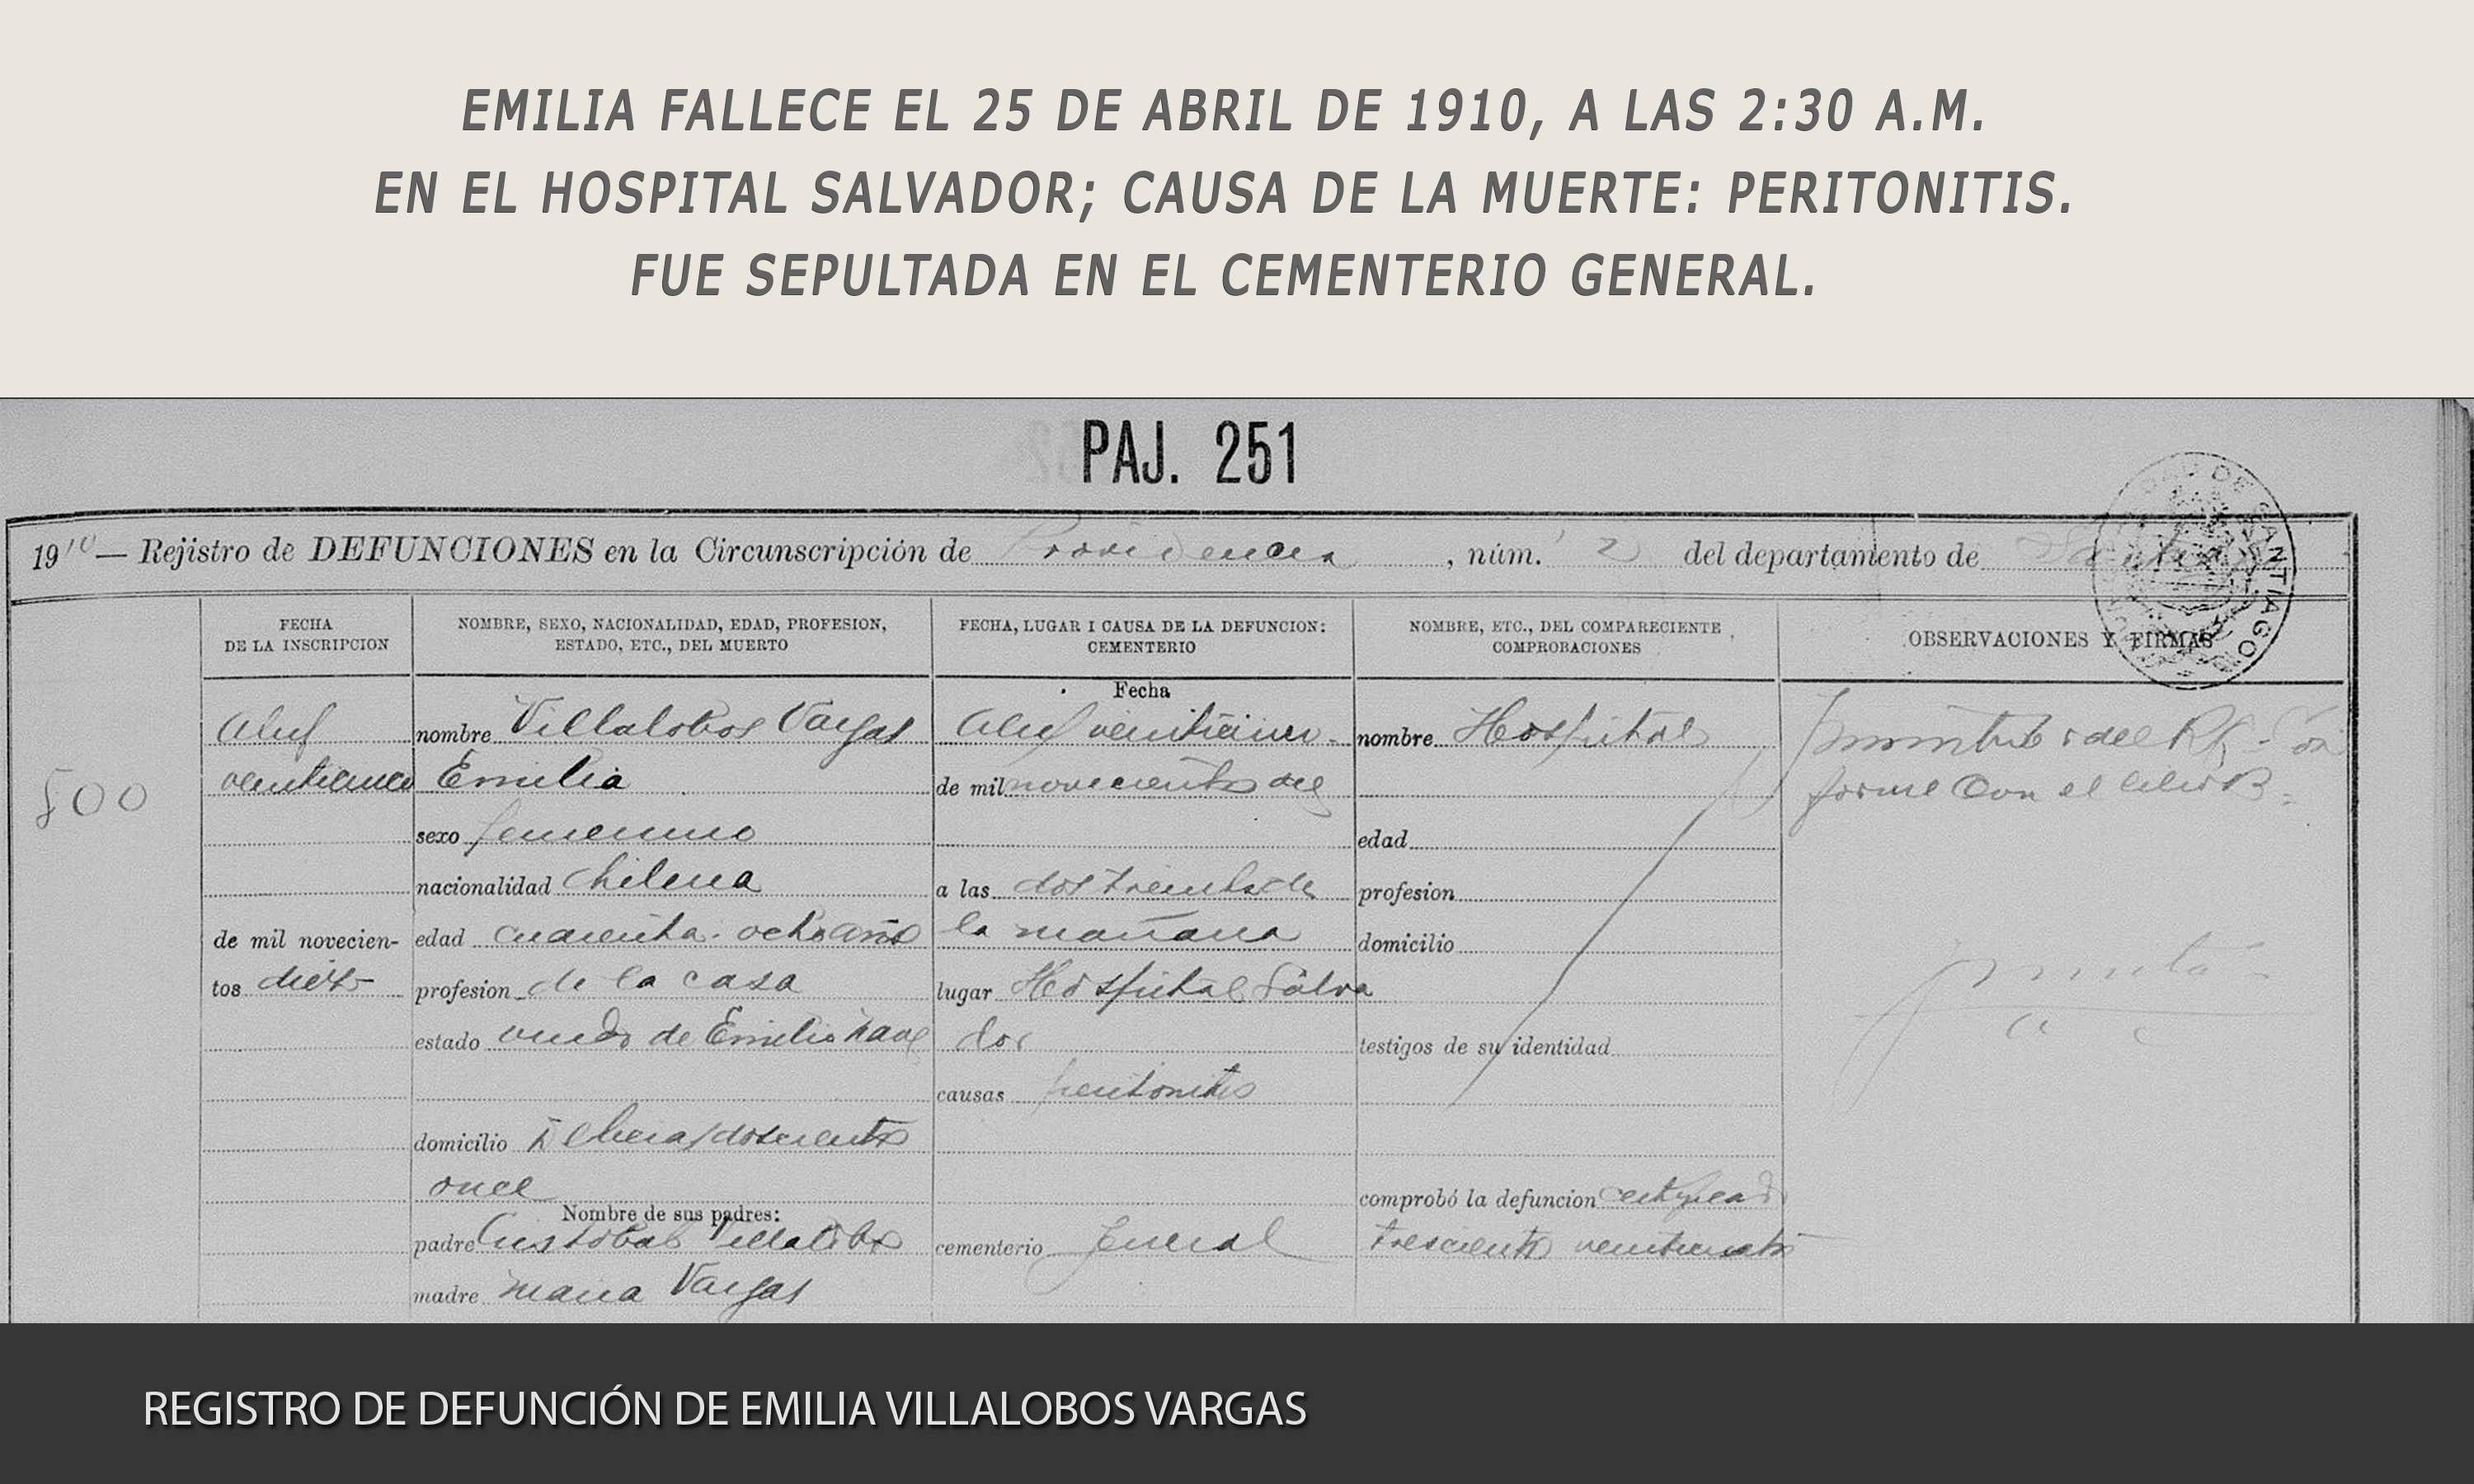 EMILIA FALLECE EL 25 DE ABRIL DE 1910, A LAS 2:30 A.M.
EN EL HOSPITAL SALVADOR; CAUSA DE LA MUERTE: PERITONITIS.
FUE SEPULTADA EN EL CEMENTERIO GENERAL.
PAJ. 251
1910 — Rejistro de DEFUNCIONES en la Circunscripción de Providencia, núm. 2 del departamento de
SANTIAGO
FECHA
DE LA INSCRIPCION
NOMBRE, SEXO, NACIONALIDAD, EDAD, PROFESION,
ESTADO, ETC., DEL MUERTO
FECHA, LUGAR I CAUSA DE LA DEFUNCION:
CEMENTERIO
NOMBRE, ETC., DEL COMPARECIENTE
COMPROBACIONES
OBSERVACIONES Y FIRMAS
800
veinticinco
de mil novecien-
tos diez
nombre Villalobos Vargas
Emilia
sexo femenino
nacionalidad chilena
edad cuarenta ocho años
profesion de la casa
estado viuda de Emilio
domicilio doscientos
once
Nombre de sus padres:
padre Cristobal Villalobos
madre maria Vargas
Fecha
veinticinco
de mil novecientos diez
a las dos treinta de
la mañana
lugar Hospital Salva
dor
causas peritonitis
cementerio Jeneral
nombre Hospital
edad
profesion
domicilio
testigos de su identidad
comprobó la defuncion certificado
trescientos
forme con el
REGISTRO DE DEFUNCIÓN DE EMILIA VILLALOBOS VARGAS